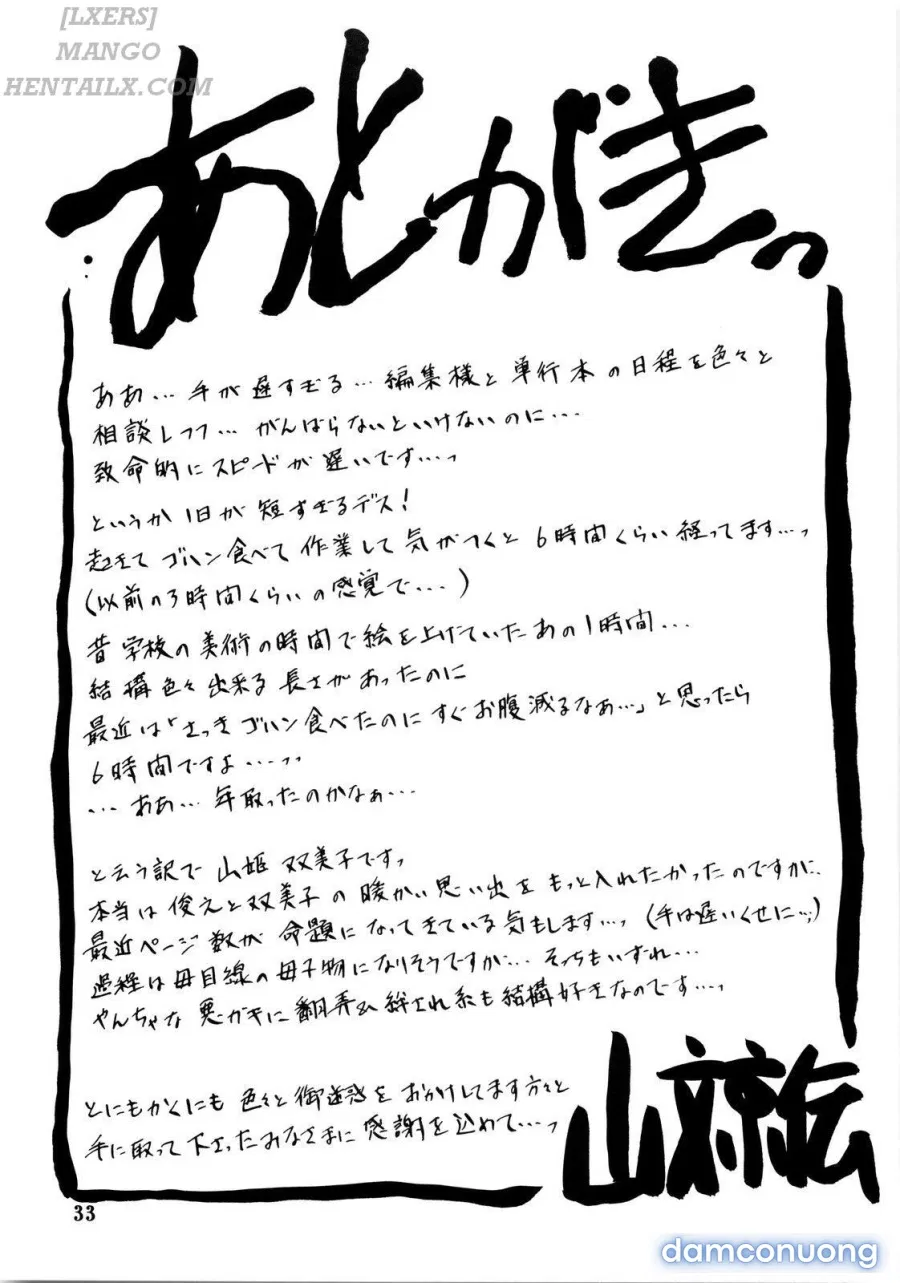 [LXERS]
MANGO
HENTAILX.COM
あとがきっ
ああ…手が遅すぎる…編集様と単行本の日程を色々と
相談しつつ…がんばらないといけないのに…
致命的にスピードが遅いです…っ
というか1日が短すぎるデス!
起きてゴハン食べて作業して気がつくと6時間くらい経ってます…っ
(以前の3時間くらいの感覚で…)
昔学校の美術の時間で絵を上げていたあの1時間…
結構色々出来る長さがあったのに
最近は「さっきゴハン食べたのにすぐお腹減るなぁ…」と思ったら
6時間ですよ…っっ
…ああ…年取ったのかなぁ…
と云う訳で山姫双美子ですっ
本当は俊えと双美子の暖かい思い出をもっと入れたかったのですが…
最近ページ数が命題になってきている気もします…っ(手は遅いくせに…)
過程は母目線の母子物になりそうですが…そっちもいずれ…
やんちゃな悪ガキに翻弄&絆され系も結構好きなのです…っ
とにもかくにも色々と御迷惑をおかけしてます方々と
手に取って下さったみなさまに感謝を込めて…っ
山文京伝
33
damconuong